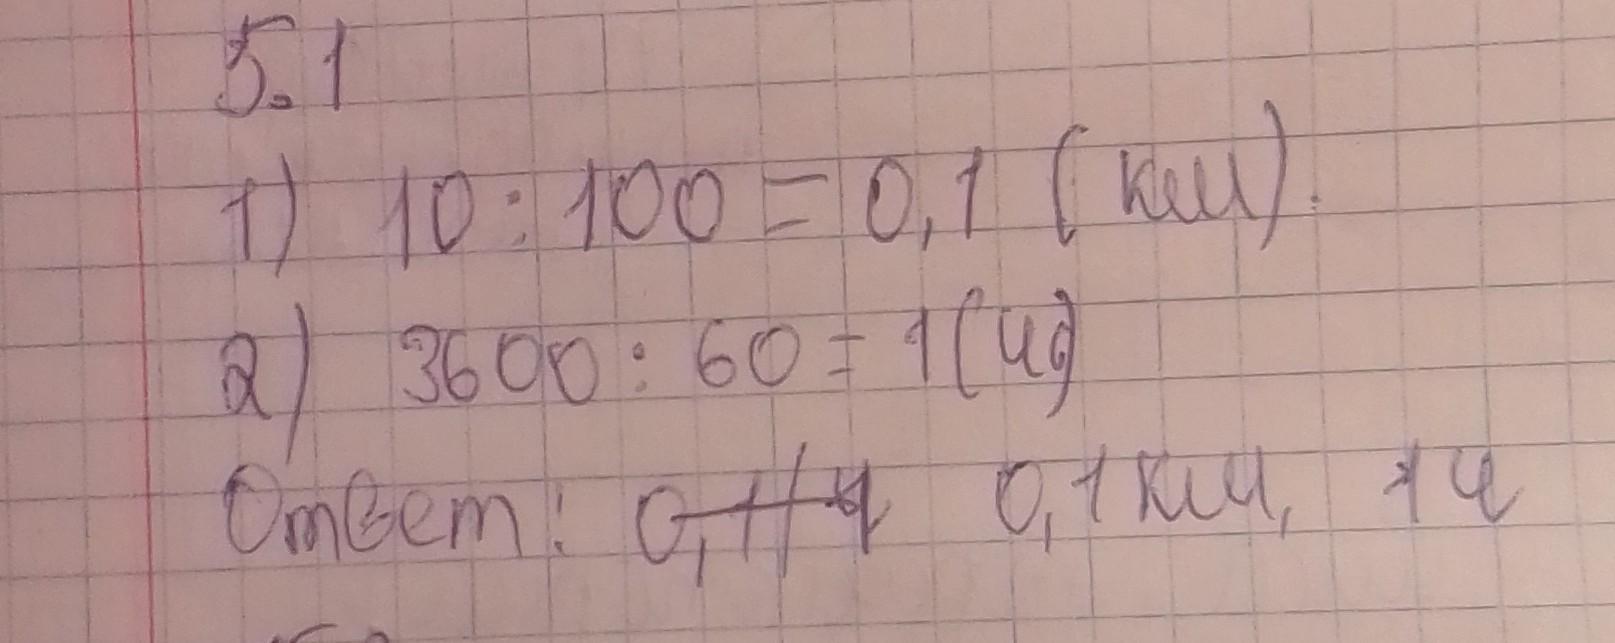 5.1
1) 10 : 100 = 0,1 (км).
2) 3600 : 60 = 1 (ч)
Ответ: 0,1 км, 1 ч